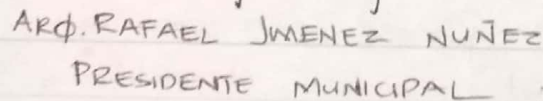 ARQ. RAFAEL JIMENEZ NUÑEZ
PRESIDENTE MUNICIPAL